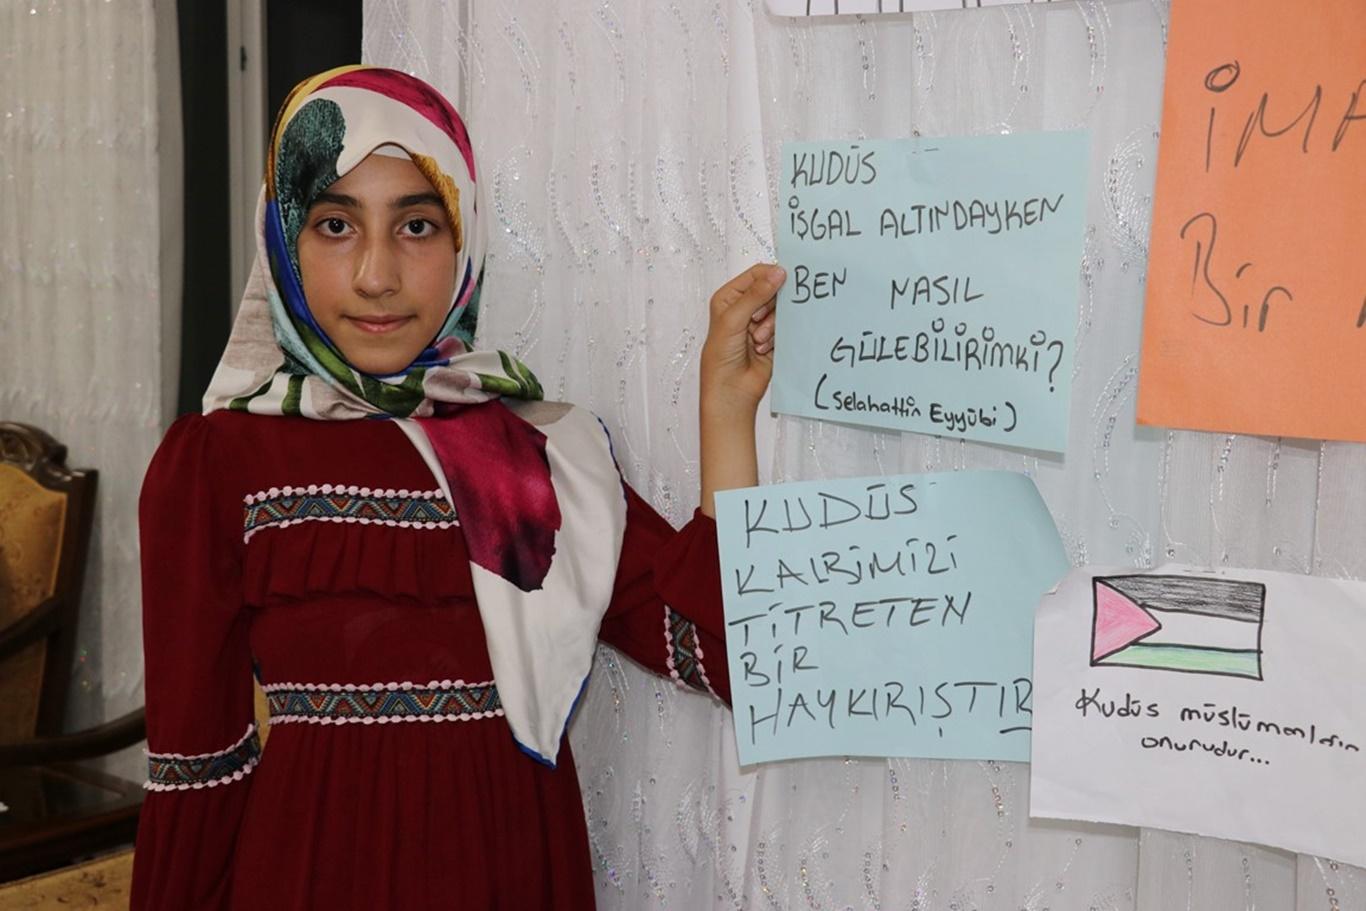 KUDÜS
İŞGAL ALTINDAYKEN
BEN NASIL
GÜLEBİLİRİMKİ?
(Selahattin Eyyübi)
KUDÜS
KALBİMİZİ
TİTRETEN
BİR
HAYKIRIŞTIR
Kudüs müslümanların
onurudur...
İMA
Bir